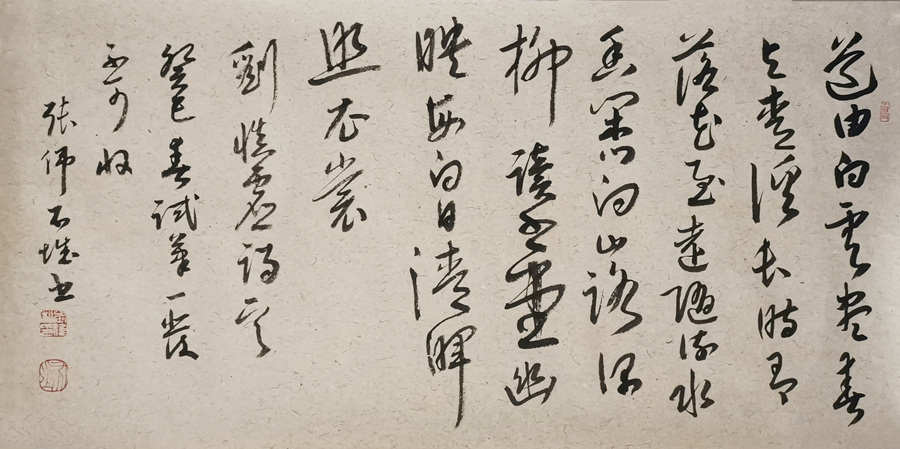 道由白雲盡春
與青溪長時有
落花至遠隨流水
香閑門向山路深
柳讀書堂幽
映每白日清暉
照衣裳
劉慎虛詩一首
癸巳春試筆一發
不可收
張偉石